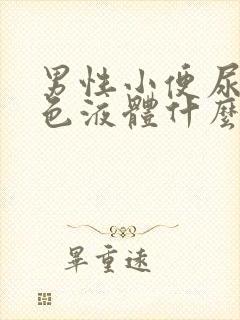 男性小便尿
色液體什麼
畢重遠